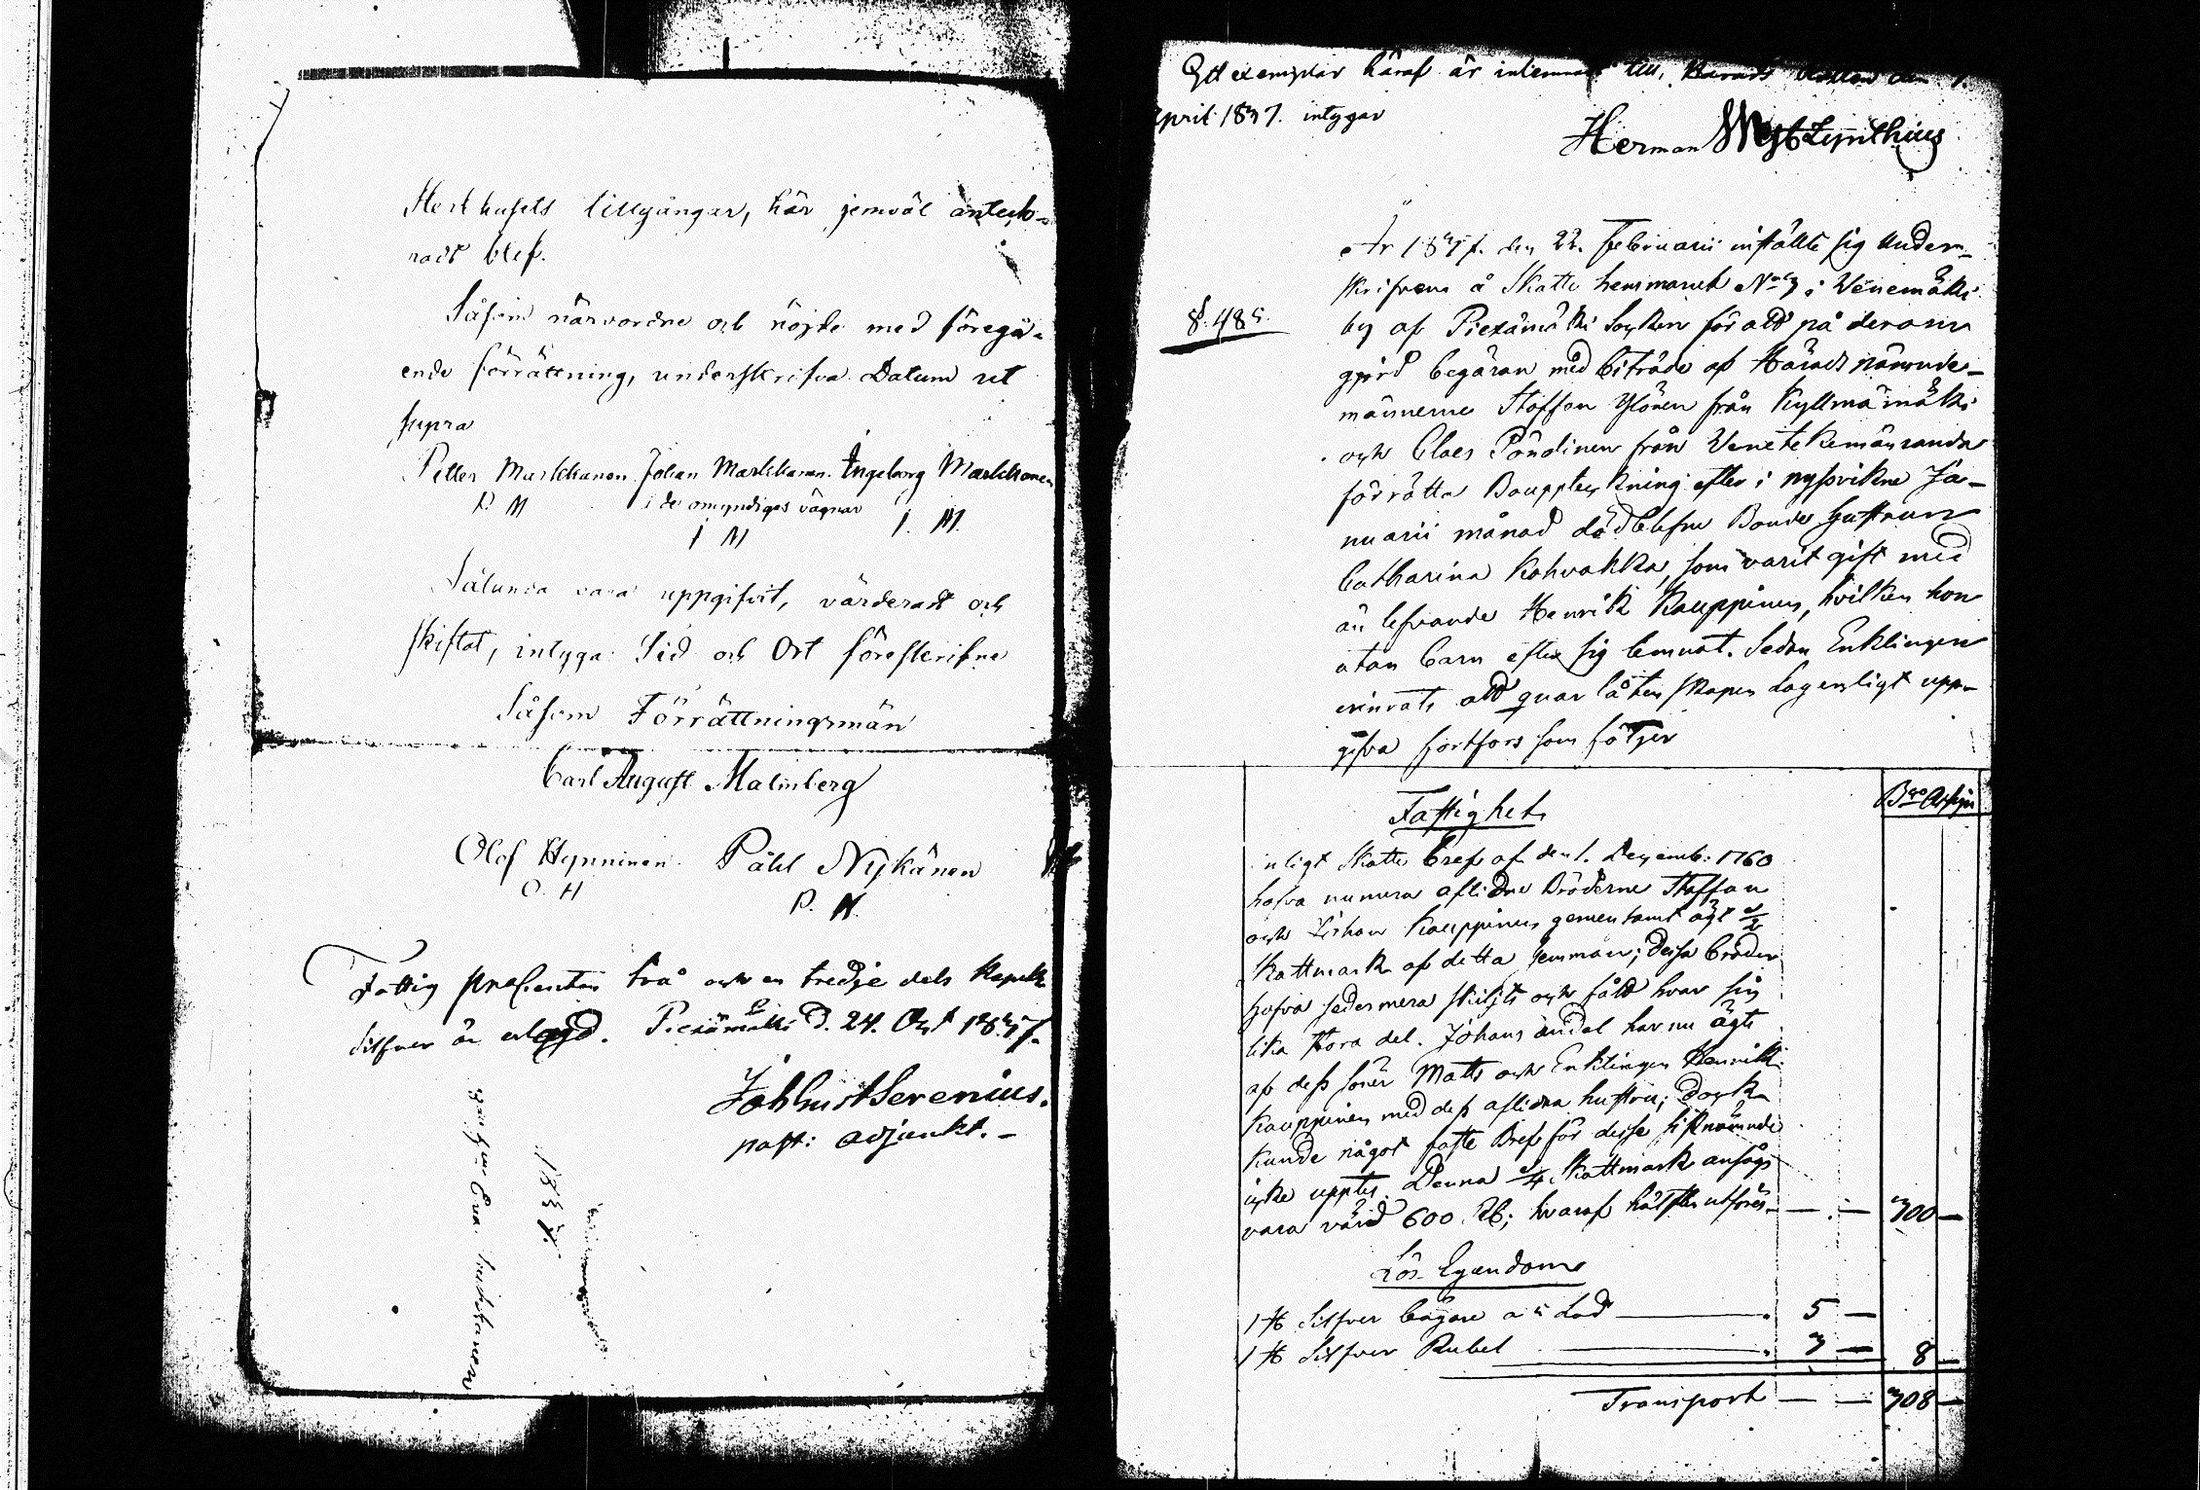 Sterbhusets tillgångar, här jemväl anteck-
nadt blef.
Såsom närvordne och nöjde med föregå-
ende förrättning, underskrifva Datum ut
supra
Petter Markkanen Johan Markkanen Ingeborg Markkanen
P. M i de omyndigas vägnar I. M.
I M
Sålunda vara uppgifvit, värderadt och
skiftat, intyga Tid och Ort föreskrifne
Såsom Förrättningsmän
Carl August Malmberg
Olof Hynninen Påhl Nykänen
O. H P. N.
Fattig procenten två och en tredje dels kopek
Silfver är erlagd. Piexämäki d. 24. Oct 1837.
Joh Serenius.
past: adjunkt.
Eva
1837.
Ett exemplar häraf är inlemnadt till Härads Rätten den 1.
April 1837. intygar
Herman Zynthius
År 1837. den 22. Februarii inställte sig Under-
skrifvena å Skatte hemmanet No 3 i Wenemäki
by af Piexämäki Socken för att på derom
gjord begäran med biträde af Härads nämnde-
männerne Staffan Ylönen från Kyllmämäki
och Claes Pöndinen från Venetekemäs randa
förrätta Boupptekning efter i nyssvikne Ja-
nuarii månad död blefne Bonde hustrun
Catharina Kohvakka, som varit gift med
än lefvande Henrik Kauppinen, hvilken hon
utan barn efter sig lemnat. Sedan Enklingen
erinrats att quarlåtenskapen Lagenligt upp-
gifva fortfors som följer
§. 485.
Bco Assign
Fastighet
Enligt Skatte bref af den 1. Decemb: 1760
hafva numera aflidne Bröderne Staffan
och Johan Kauppinen gemensamt ägt 1/2
skattmark af detta hemman; dessa bröder
hafva sedermera skiljts och fådt hvar sin
lika stora del. Johans andel har nu ägts
af dess söner Matts och Enklingen Henrik
Kauppinen med dess aflidna hustru; dock
kunde något faste Bref för desse sistnämnde
icke uppte. Denna 1/4 Skattmark ansågs
vara värd 600 Rb; hvaraf hälften utföres — 300 —
Lös Egendom
1 st Silfver bägare a 5 Lod — 5 —
1 st Silfver Rubel — 3 — 8 —
Transport — 308 —